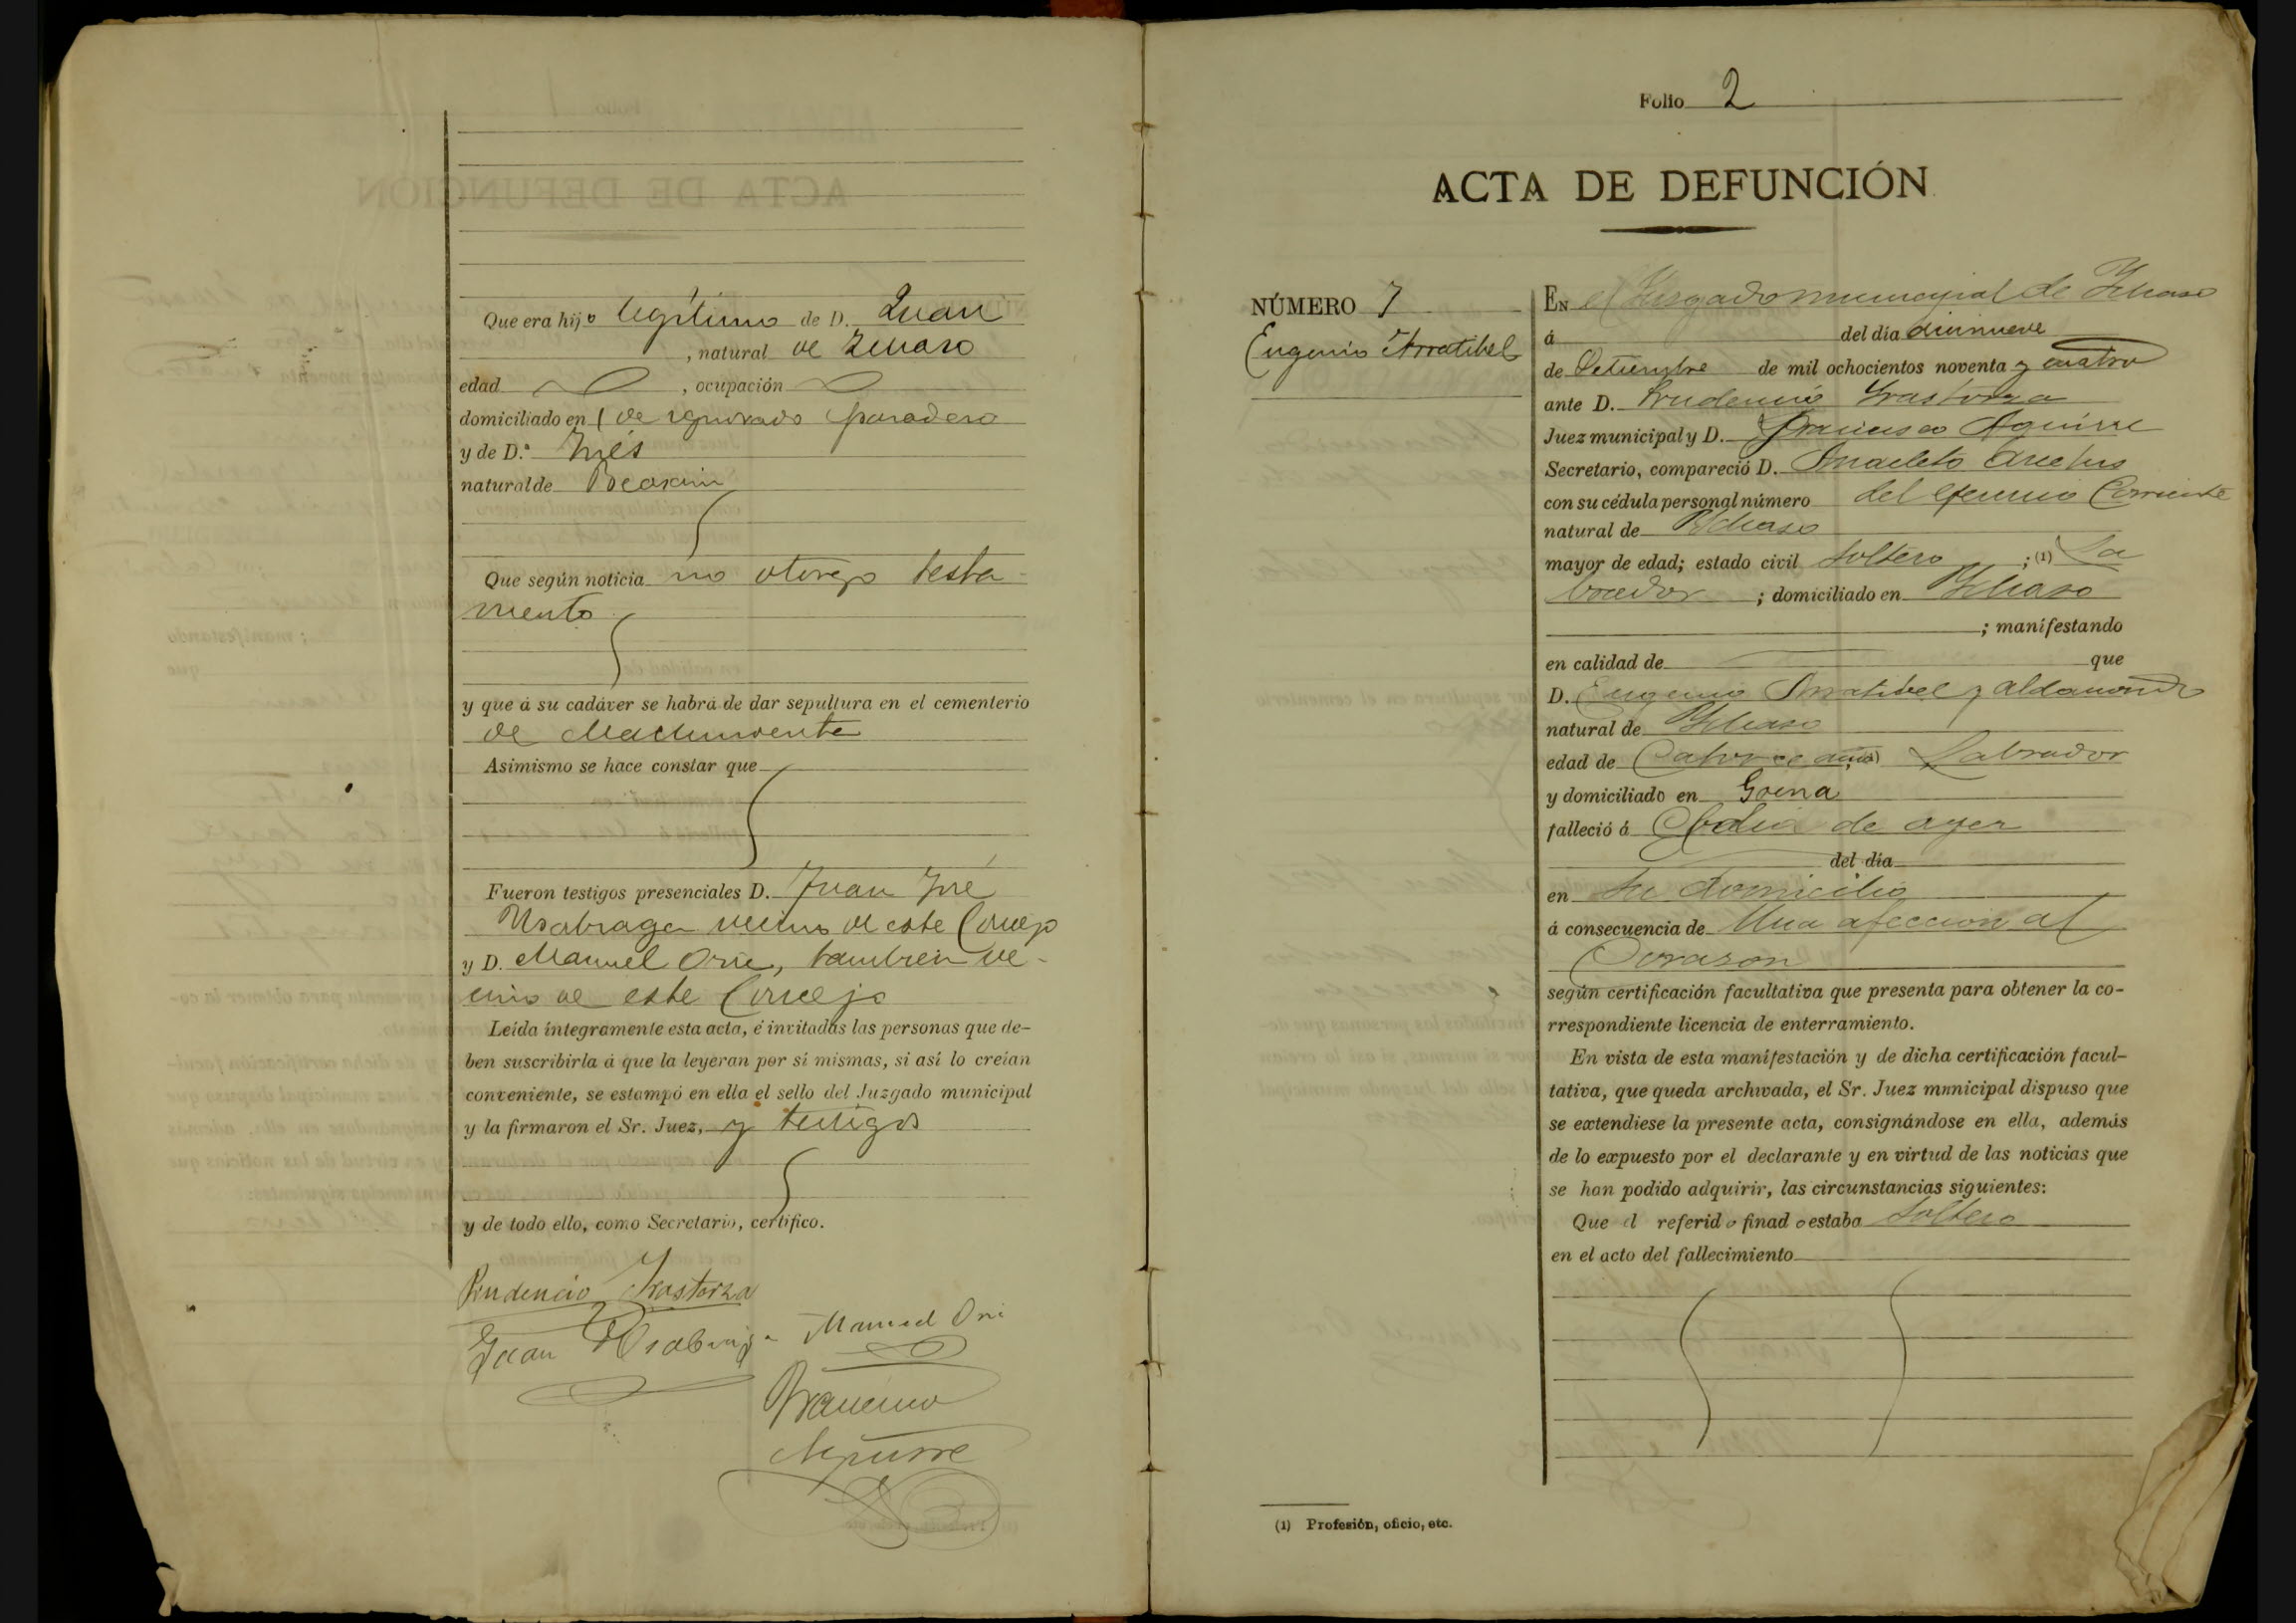 Que era hijo legítimo de D. Juan
, natural de Ichaso
edad , ocupación
domiciliado en (de ignorado paradero
y de D.ª Inés
natural de Beasain
Que según noticia no otorgó testa-
mento
y que á su cadáver se habrá de dar sepultura en el cementerio
de
Asimismo se hace constar que
Fueron testigos presenciales D. Juan José
Usabiaga vecino de este Concejo
y D. Manuel Oria, tambien ve-
cino de este Concejo
Leída íntegramente esta acta, é invitadas las personas que de-
ben suscribirla á que la leyeran por sí mismas, si así lo creían
conveniente, se estampó en ella el sello del Juzgado municipal
y la firmaron el Sr. Juez, y testigos
y de todo ello, como Secretario, certifico.
Prudencio Irastorza
Juan Usabiaga Manuel Oria
Francisco
Aguirre
Folio 2
ACTA DE DEFUNCIÓN
NÚMERO 7
Eugenio Arratibel
EN el Juzgado municipal de Ichaso
á del día diecinueve
de Setiembre de mil ochocientos noventa y cuatro
ante D. Prudencio Irastorza
Juez municipal y D. Francisco Aguirre
Secretario, compareció D. Anacleto
con su cédula personal número del ejercicio Corriente
natural de Ichaso
mayor de edad; estado civil soltero ; (1) La
brador ; domiciliado en Ichaso
; manifestando
en calidad de que
D. Eugenio Arratibel y Aldanondo
natural de Ichaso
edad de Catorce años Labrador
y domiciliado en Goena
falleció á de ayer
del día
en su domicilio
á consecuencia de Una afeccion al
Corazon
según certificación facultativa que presenta para obtener la co-
rrespondiente licencia de enterramiento.
En vista de esta manifestación y de dicha certificación facul-
tativa, que queda archivada, el Sr. Juez municipal dispuso que
se extendiese la presente acta, consignándose en ella, además
de lo expuesto por el declarante y en virtud de las noticias que
se han podido adquirir, las circunstancias siguientes:
Que el referido finado estaba soltero
en el acto del fallecimiento
(1) Profesión, oficio, etc.